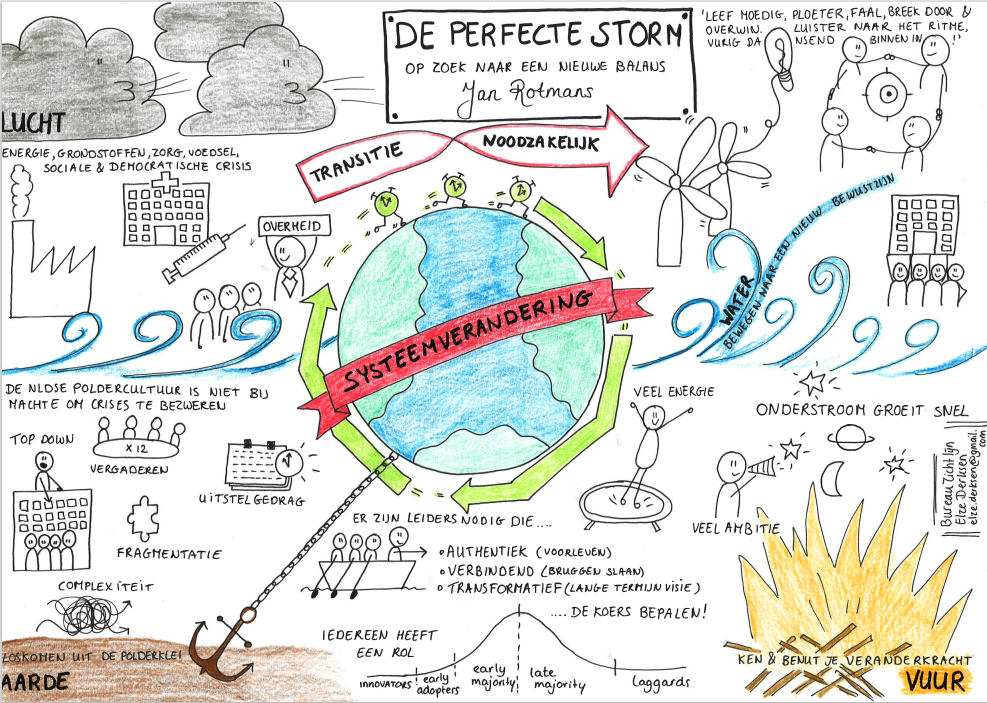 DE PERFECTE STORM
OP ZOEK NAAR EEN NIEUWE BALANS
Jan Rotmans
'LEEF MOEDIG, PLOETER, FAAL, BREEK DOOR &
OVERWIN. LUISTER NAAR HET RITME,
VURIG DA NSEND BINNEN IN !'
LUCHT
ENERGIE, GRONDSTOFFEN, ZORG, VOEDSEL,
SOCIALE & DEMOCRATISCHE CRISIS
OVERHEID
TRANSITIE NOODZAKELIJK
SYSTEEMVERANDERING
WATER
BEWEGEN NAAR EEN NIEUW BEWUSTZIJN
DE NLDSE POLDERCULTUUR IS NIET BIJ
MACHTE OM CRISES TE BEZWEREN
TOP DOWN
X 12
VERGADEREN
UITSTELGEDRAG
FRAGMENTATIE
COMPLEXITEIT
LOSKOMEN UIT DE POLDERKLEI
AARDE
ER ZIJN LEIDERS NODIG DIE....
• AUTHENTIEK (VOORLEVEN)
• VERBINDEND (BRUGGEN SLAAN)
• TRANSFORMATIEF (LANGE TERMIJN VISIE)
.... DE KOERS BEPALEN!
IEDEREEN HEEFT
EEN ROL
INNOVATORS
early
adopters
early
majority
late
majority
Laggards
VEEL ENERGIE
ONDERSTROOM GROEIT SNEL
VEEL AMBITIE
Bureau Lichtlijn
Elze Derksen
elze.derksen@gmail.
com
KEN & BENUT JE VERANDERKRACHT
VUUR